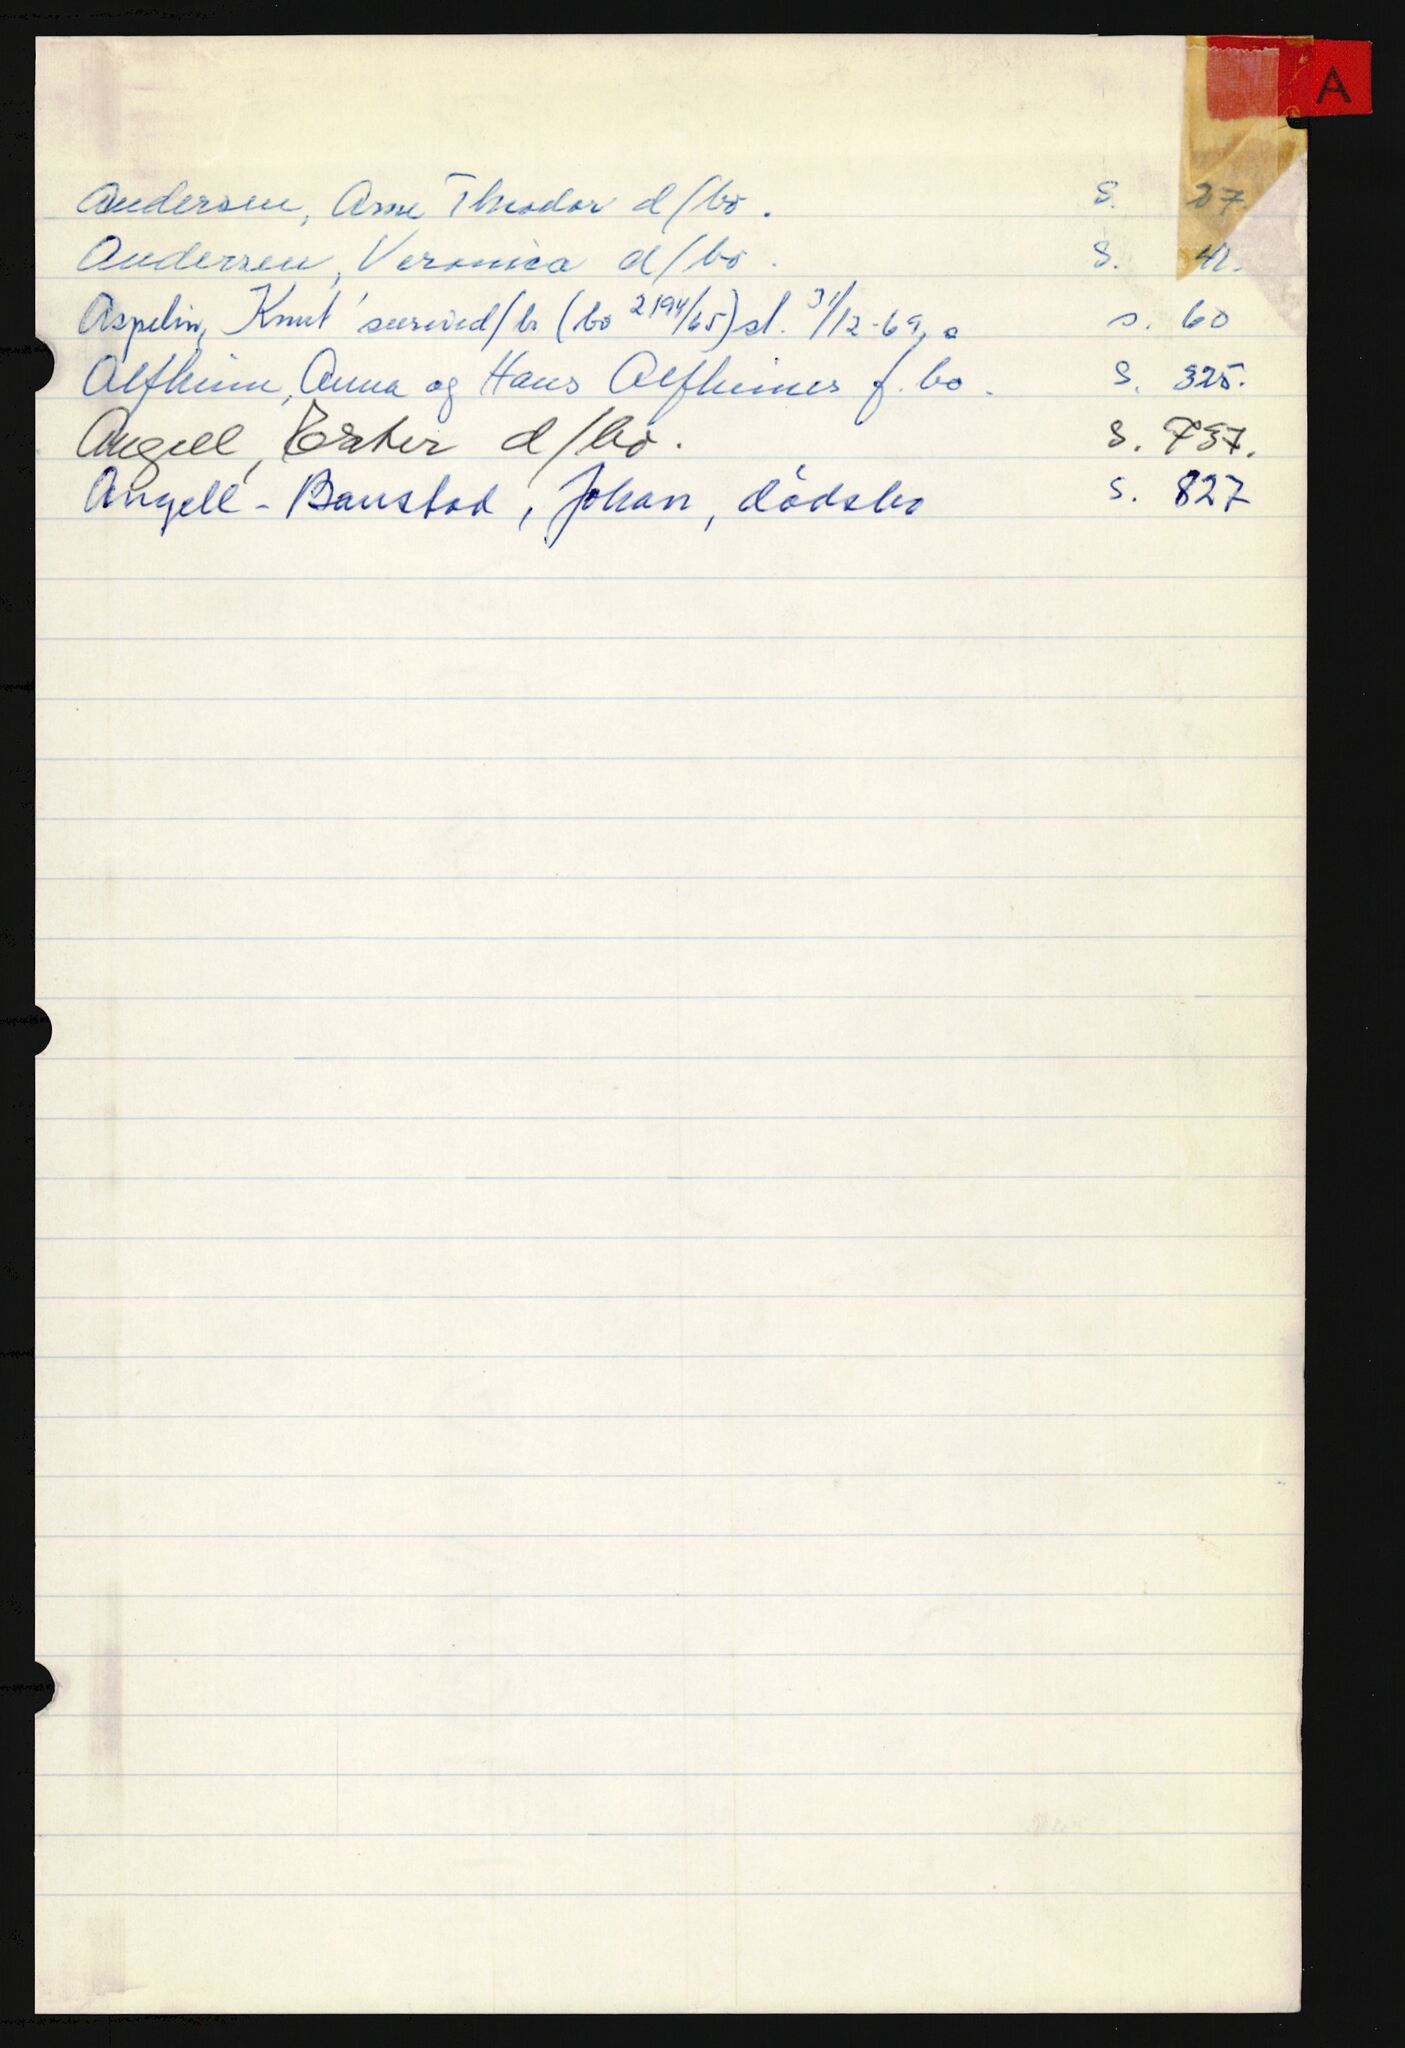 A
Andersen, Arne Theodor d/bo. s. 27.
Andersen, Veronica d/bo. s. 42.
Aspelin, Knut d/b (bo 2194/65) sl. 31/12-69. s. 60
Alfheim, Anna og Hans Alfheims f. bo. s. 325.
Angell, Ester d/bo. s. 737.
Angell - Banstad, Johan, dødsbo s. 827